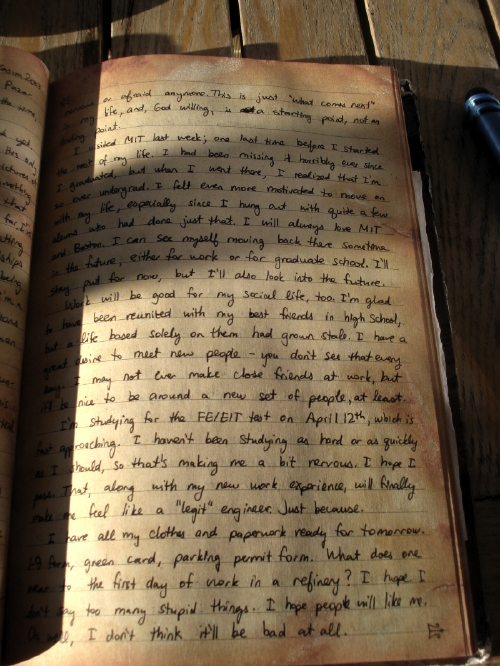 Season 2013
nervous or afraid anymore. This is just "what comes next"
in my life, and, God willing, is a starting point, not an
ending point.
I visited MIT last week; one last time before I started
the rest of my life. I had been missing it horribly ever since
I graduated, but when I went there, I realized that I'm
so over undergrad. I felt even more motivated to move on
with my life, especially since I hung out with quite a few
alums who had done just that. I will always love MIT
and Boston. I can see myself moving back there sometime
in the future, either for work or for graduate school. I'll
stay put for now, but I'll also look into the future.
Work will be good for my social life, too. I'm glad
to have been reunited with my best friends in high school,
but a life based solely on them had grown stale. I have a
great desire to meet new people - you don't see that every
day. I may not ever make close friends at work, but
it'll be nice to be around a new set of people, at least.
I'm studying for the FE/EIT test on April 12th, which is
fast approaching. I haven't been studying as hard or as quickly
as I should, so that's making me a bit nervous. I hope I
pass. That, along with my new work experience, will finally
make me feel like a "legit" engineer. Just because.
I have all my clothes and paperwork ready for tomorrow.
I-9 form, green card, parking permit form. What does one
wear to the first day of work in a refinery? I hope I
don't say too many stupid things. I hope people will like me.
Oh well, I don't think it'll be bad at all.